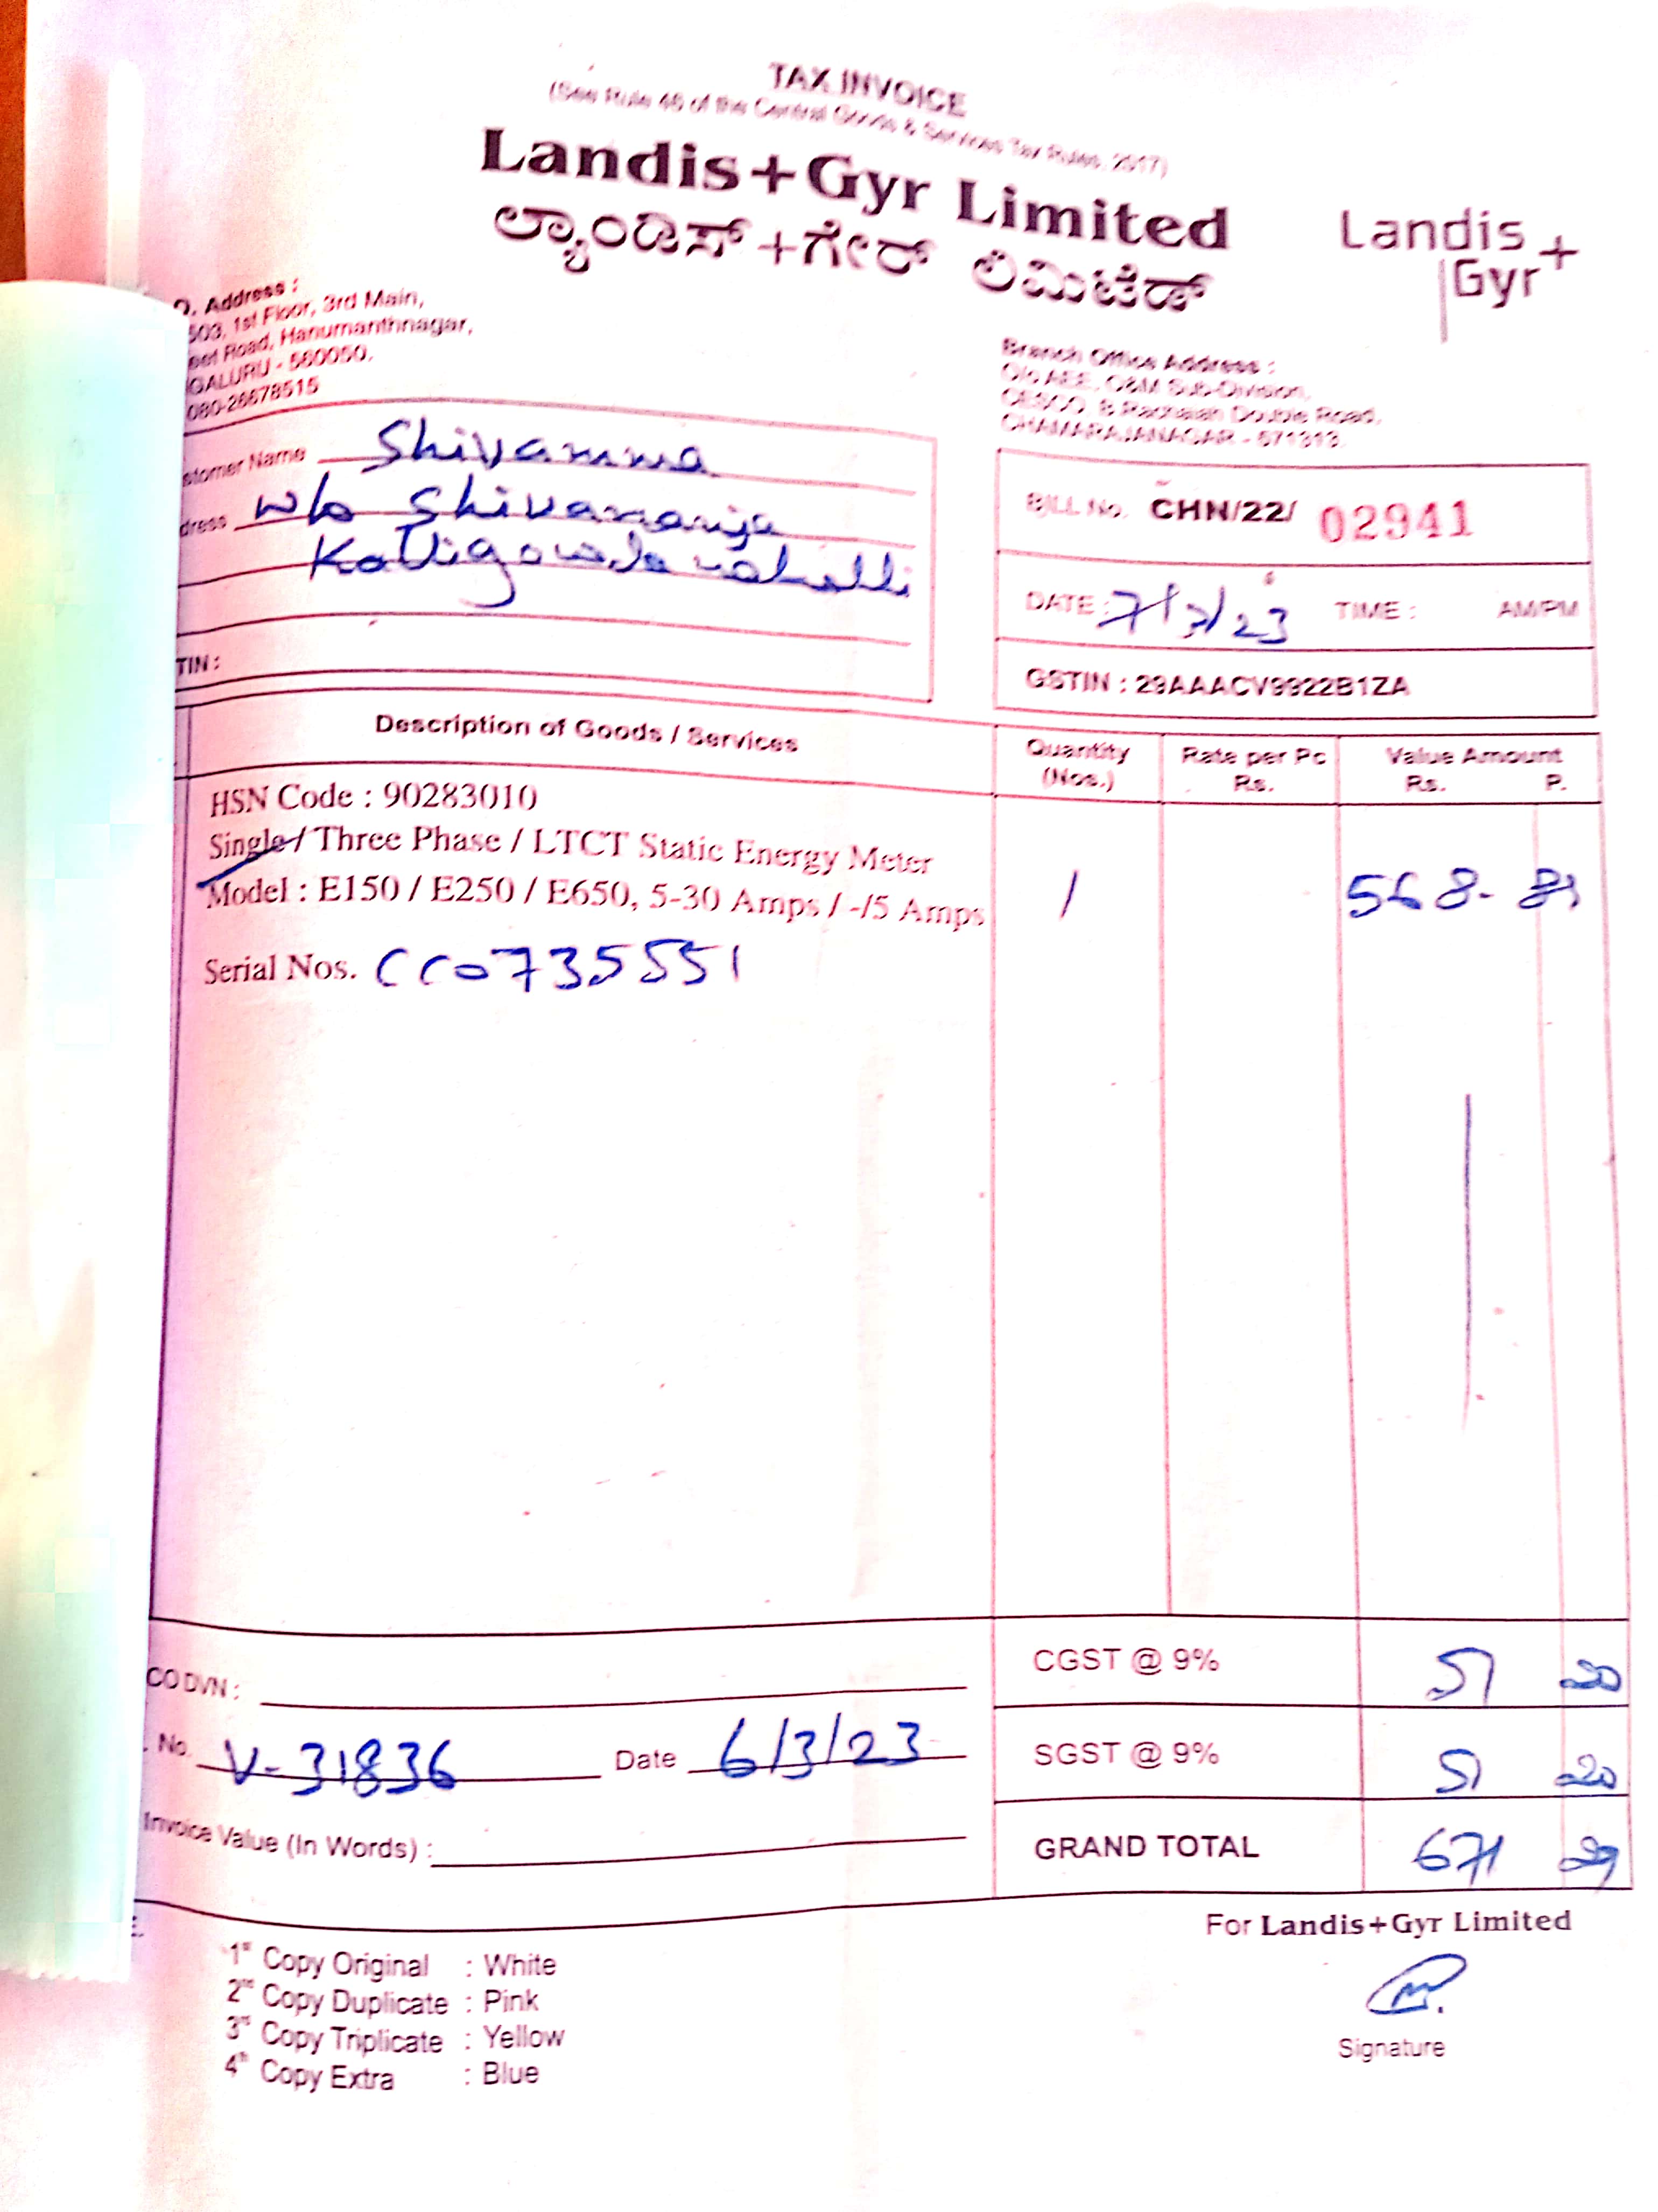 TAX INVOICE
(See Rule 46 of the Central Goods & Services Tax Rules, 2017)
Landis+Gyr Limited
ಲ್ಯಾಂಡಿಸ್+ಗೇರ್ ಲಿಮಿಟೆಡ್
Landis
Gyr+
O. Address :
503, 1st Floor, 3rd Main,
Road, Hanumanthnagar,
GALURU - 560050.
080-26678515
Branch Office Address :
O/o AEE, O&M Sub-Division,
CESCO, B Rachaiah Double Road,
CHAMARAJANAGAR - 571313.
stomer Name Shivamma
dress w/o
TIN :
BILL No. CHN/22/ 02941
DATE : 7/3/23 TIME : AM/PM
GSTIN : 29AAACV9922B1ZA
Description of Goods / Services
Quantity (Nos.)
Rate per Pc Rs.
Value Amount Rs. P.
HSN Code : 90283010
Single / Three Phase / LTCT Static Energy Meter
Model : E150 / E250 / E650, 5-30 Amps / -/5 Amps
1 568-89
Serial Nos. CC0735551
CO DVN :
CGST @ 9% 51 20
. No. V-31836 Date 6/3/23
SGST @ 9% 51 20
Invoice Value (In Words) :
GRAND TOTAL 671 29
For Landis+Gyr Limited
1st Copy Original : White
2nd Copy Duplicate : Pink
3rd Copy Triplicate : Yellow
4th Copy Extra : Blue
Signature